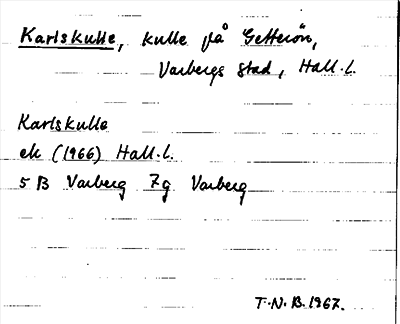 Karlskulle, kulle på Getterön,
Varbergs stad, Hall.l.
Karlskulle
ek (1966) Hall.l.
5 B Varberg 7g Varberg
T.N.B. 1967.